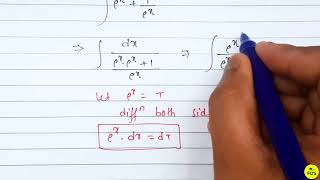 ∫ e^x + 1/e^x
⇒ ∫ dx / ((e^x · e^x + 1) / e^x) ⇒ ∫ e^x / e^x
let e^x = T
diff^n both sid
e^x · dx = dT
PDS